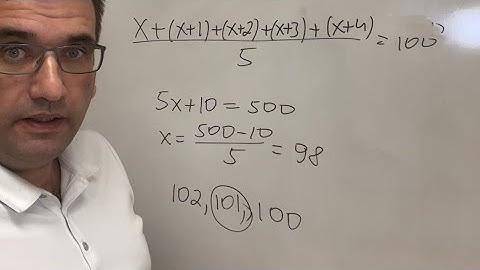 x+(x+1)+(x+2)+(x+3)+(x+4)
5
=100
5x+10=500
x=
500-10
5
=98
102, 101, 100